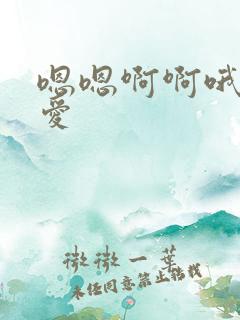 嗯嗯啊啊哦
爱
微微一叶
未经同意禁止转载